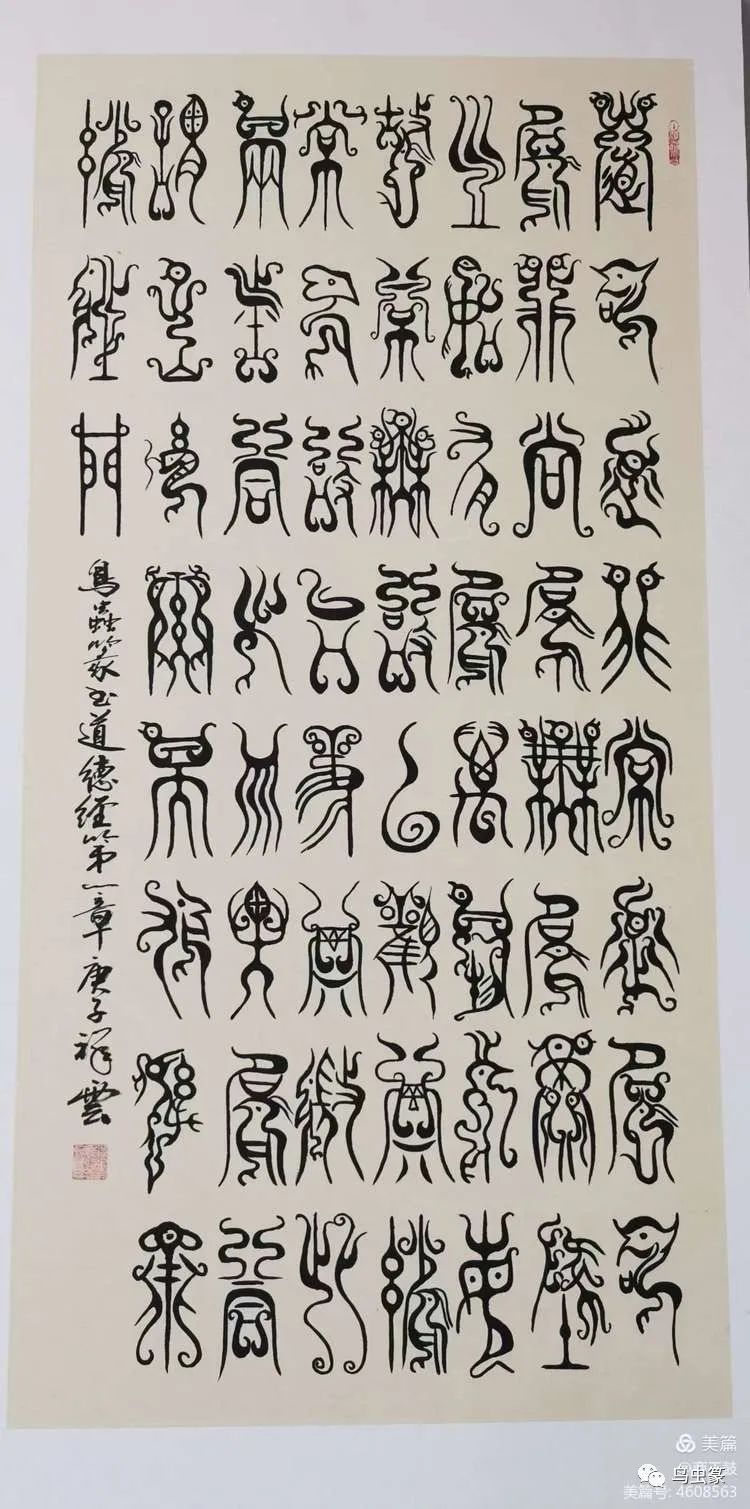 道可道非常道名可
名非常名無名天地
之始有名萬物之母
故常無欲以觀其妙
常有欲以觀其徼此
兩者同出而異名同
謂之玄玄之又玄衆
妙之門
鳥蟲篆书道德经第一章庚子祥雲
美篇
鸟虫篆
美篇号: 4608563